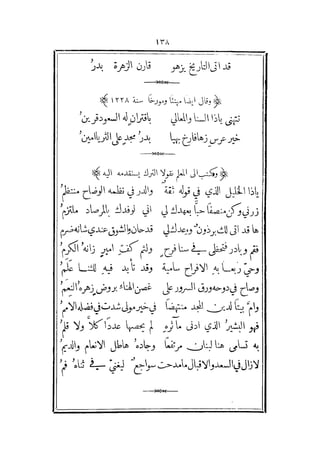 ١٣٨
قد اتى التاريخ يزهو قارن الزهرة بدرُ
﴿ وقال ايضا مهنئا ومورخا سنة ١٢٢٨ ﴾
تتهنى ياذا السنا والمعالي باقتران له السعود قرينُ
خير عرس زها فارخ بهيا بدرُ مجدٍ على الثريا امينُ
﴿ وكتب الى المعلم نقولا الترك يستقدمه اليه ﴾
ياذا الخليل الذي في قوله ثقة والدر في نظمه الوضاح منتظمُ
زرني وكن منصفاً حباً بعهدك لي اني لوفدك بالمرصاد ملتزمُ
ها قد اتى لك برذون وبعدك لي قد حان والشوق عندي شانه ضرم
فقم وبادر فتحظى في سنا فرح ولثم كف امير زانه الكرمُ
وحيّ ربعا به الافراح سامية وقد تأبد فيه للثنا علمُ
وصاح في دوحه ورق السرور على غصن الهناء بروض زهره النعمُ
وامَّ بيتاً لدين المجد منتهضاً في خير مولى شدت في فضله الامم
فهو البشير الذي ادنى مآثره لم يحصها عدداً كلا ولا قلمُ
به تسامى هنا لبنان مرتفعاً وجاده هاطل الانعام والديمُ
لا زال في السعد والاقبال ما صدحت سواجع ليغني في ثناه فمُ